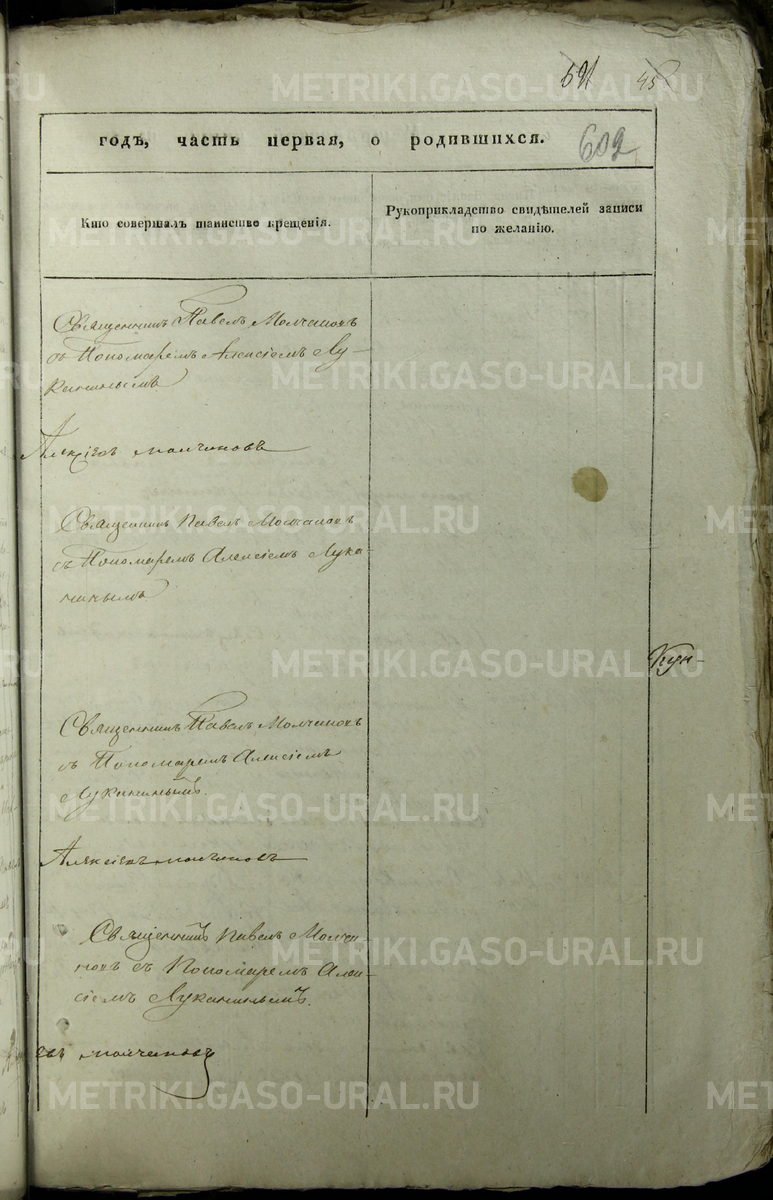 602
годъ, часть первая, о родившихся.
Кто совершалъ таинство крещенія.
Рукоприкладство свидѣтелей записи
по желанію.
Священникъ Павелъ Молчановъ
съ Пономаремъ Алексіемъ Лу-
канинымъ
Алексіевъ молчановъ
Священникъ Павелъ Молчановъ
съ Пономаремъ Алексіемъ Лука-
нинымъ
Кун-
Священникъ Павелъ Молчановъ
съ Пономаремъ Алексіемъ
Луканинымъ.
Алексіевъ молчановъ
Священникъ Павелъ Молча-
новъ съ Пономаремъ Алек-
сіемъ Луканинымъ.
евъ молчановъ
METRIKI.GASO-URAL.RU